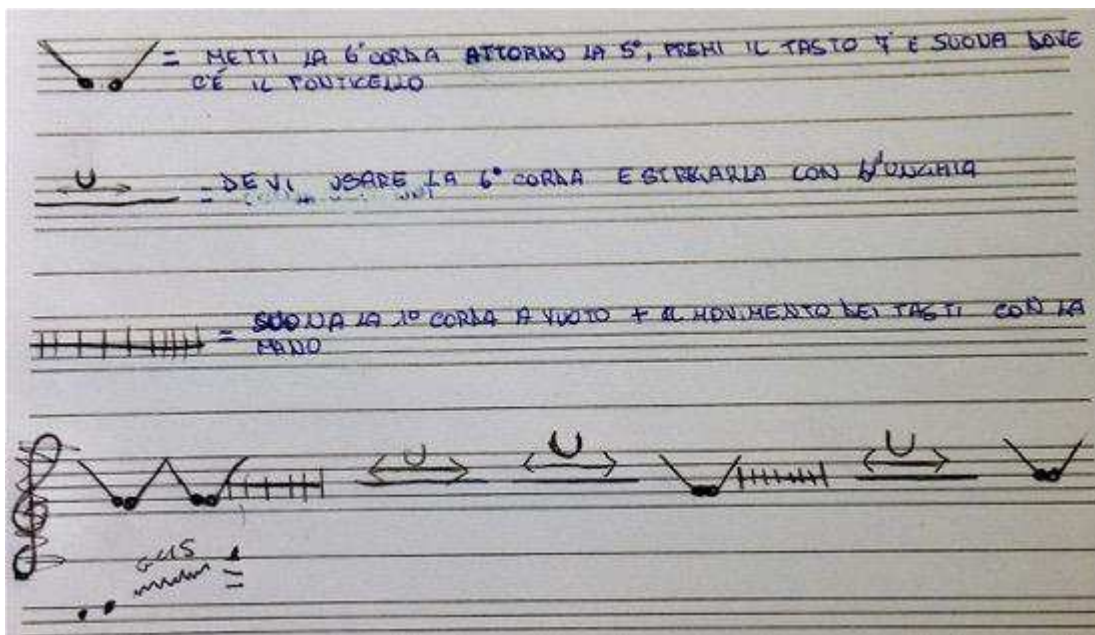 = METTI LA 6° CORDA ATTORNO LA 5°, PREMI IL TASTO 7° E SUONA DOVE
C'È IL PONTICELLO
= DEVI USARE LA 6° CORDA E STRICIARLA CON L'UNGHIA
= SUONA LA 1° CORDA A VUOTO + IL MOVIMENTO DEI TASTI CON LA
MANO